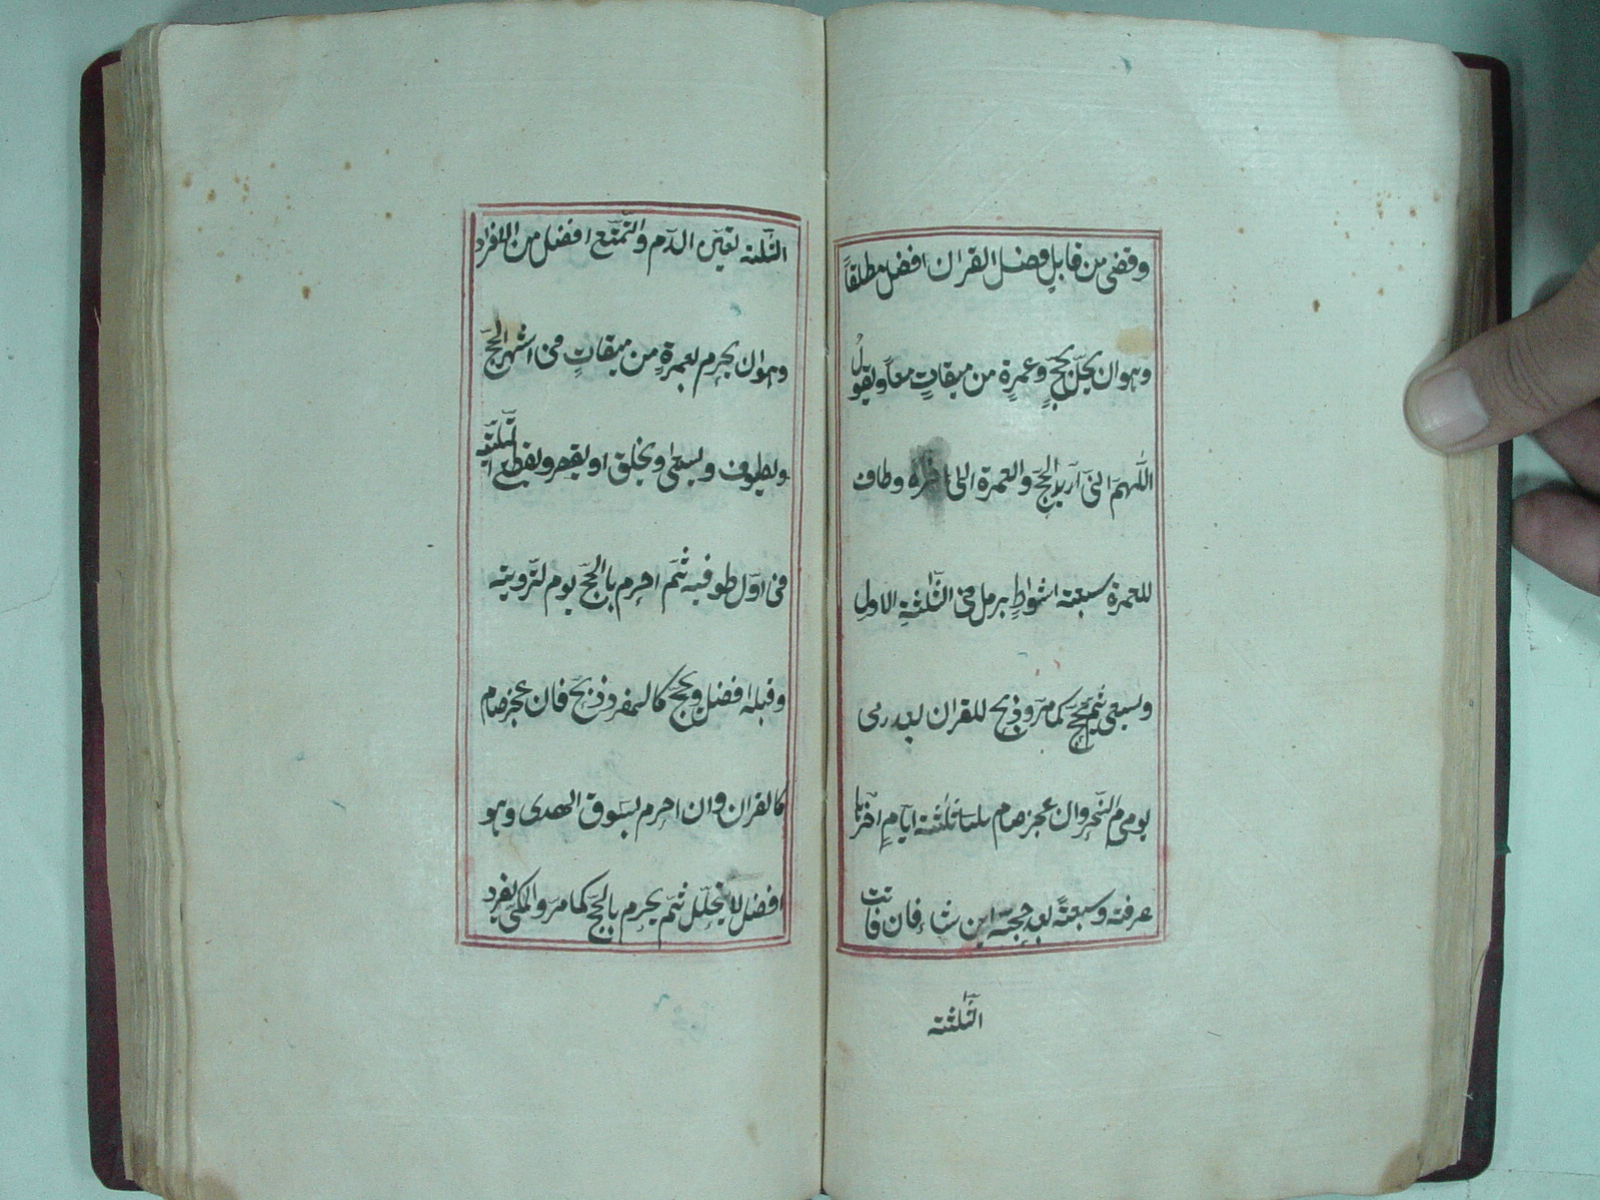 وقضى من قابل فصل القران افضل مطلقاً
وهو ان يهلّ بحجٍّ وعمرةٍ من ميقاتٍ معاً ويقولُ
اللّهمّ انّى اريد الحجّ والعمرة الى اخره وطاف
للعمرة سبعته اشواطٍ يرمل فى الثّلثةِ الاولِ
ويسعى ثمّ يحجّ كما مرّ وذبح للقران بعد رمى
يوم النّحر وان عجز صام ثلثته ايّامٍ اخرها
عرفته وسبعتهً بعد حجّته اين شاء فان فاتت
الثّلثته
الثّلثه تعيّن الدّم والتّمتّع افضل من الافراد
وهو ان يحرم بعمرةٍ من ميقاتٍ فى اشهر الحجّ
ويطوف ويسعى ويحلق او يقصر ويقطع التّلبيته
فى اوّل طوفيه ثمّ احرم بالحجّ يوم لتّرويته
وقبله افضل ويحجّ كالمفرد وذبح فان عجز صام
كالقران وان احرم بسوق الهدى وهو
افضل لا يتحلّل ثمّ يحرم بالحجّ كما مرّ والمكّى يفرد